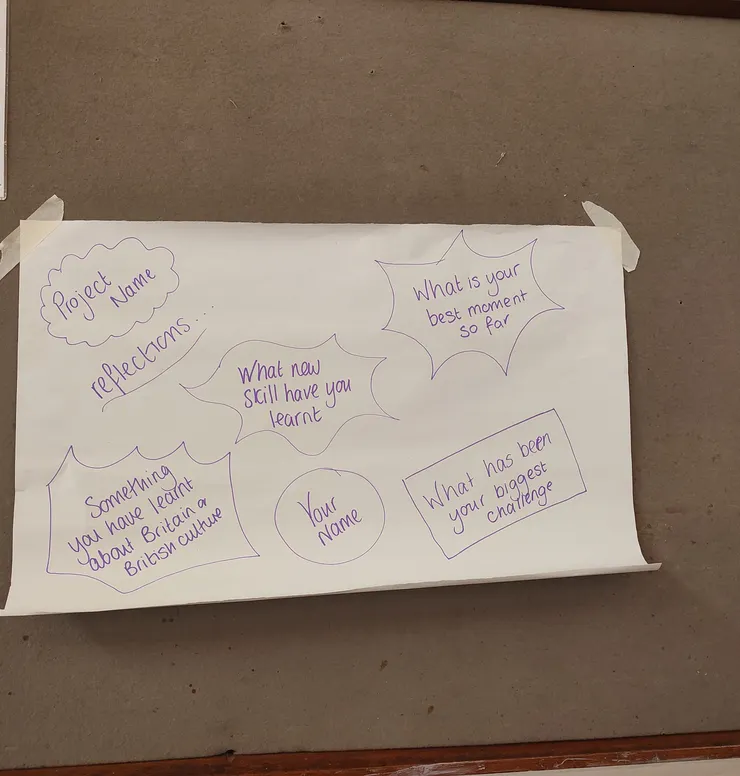 Project
Name
reflections...
What is your
best moment
so far
What new
skill have you
learnt
Something
you have learnt
about Britain or
British culture
Your
Name
What has been
your biggest
challenge